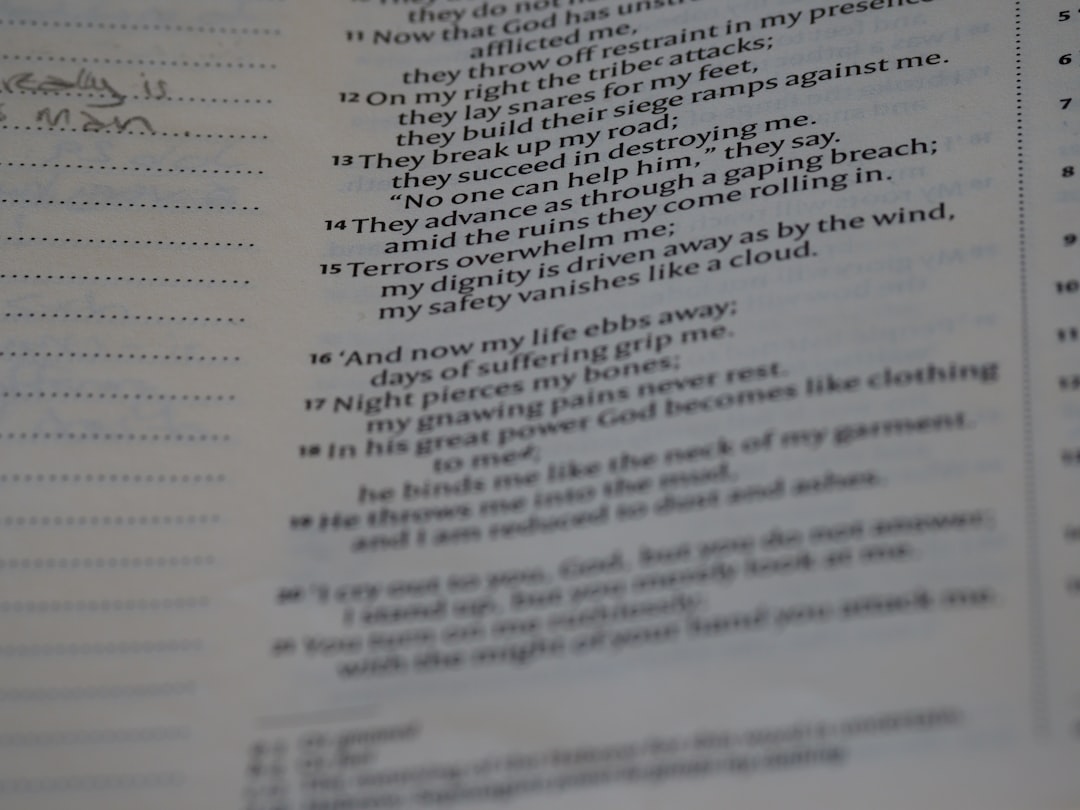 really is
man.
they do not
11 Now that God has unst
afflicted me,
they throw off restraint in my presence
12 On my right the tribeᶜ attacks;
they lay snares for my feet,
they build their siege ramps against me.
13 They break up my road;
they succeed in destroying me.
“No one can help him,” they say.
14 They advance as through a gaping breach;
amid the ruins they come rolling in.
15 Terrors overwhelm me;
my dignity is driven away as by the wind,
my safety vanishes like a cloud.
16 ‘And now my life ebbs away;
days of suffering grip me.
17 Night pierces my bones;
my gnawing pains never rest.
18 In his great power God becomes like clothing
to meᵈ;
he binds me like the neck of my garment.
19 He throws me into the mud,
and I am reduced to dust and ashes.
20 ‘I cry out to you, God, but you do not answer;
I stand up, but you merely look at me.
21 You turn on me ruthlessly;
with the might of your hand you attack me.
5
6
7
8
9
10
11